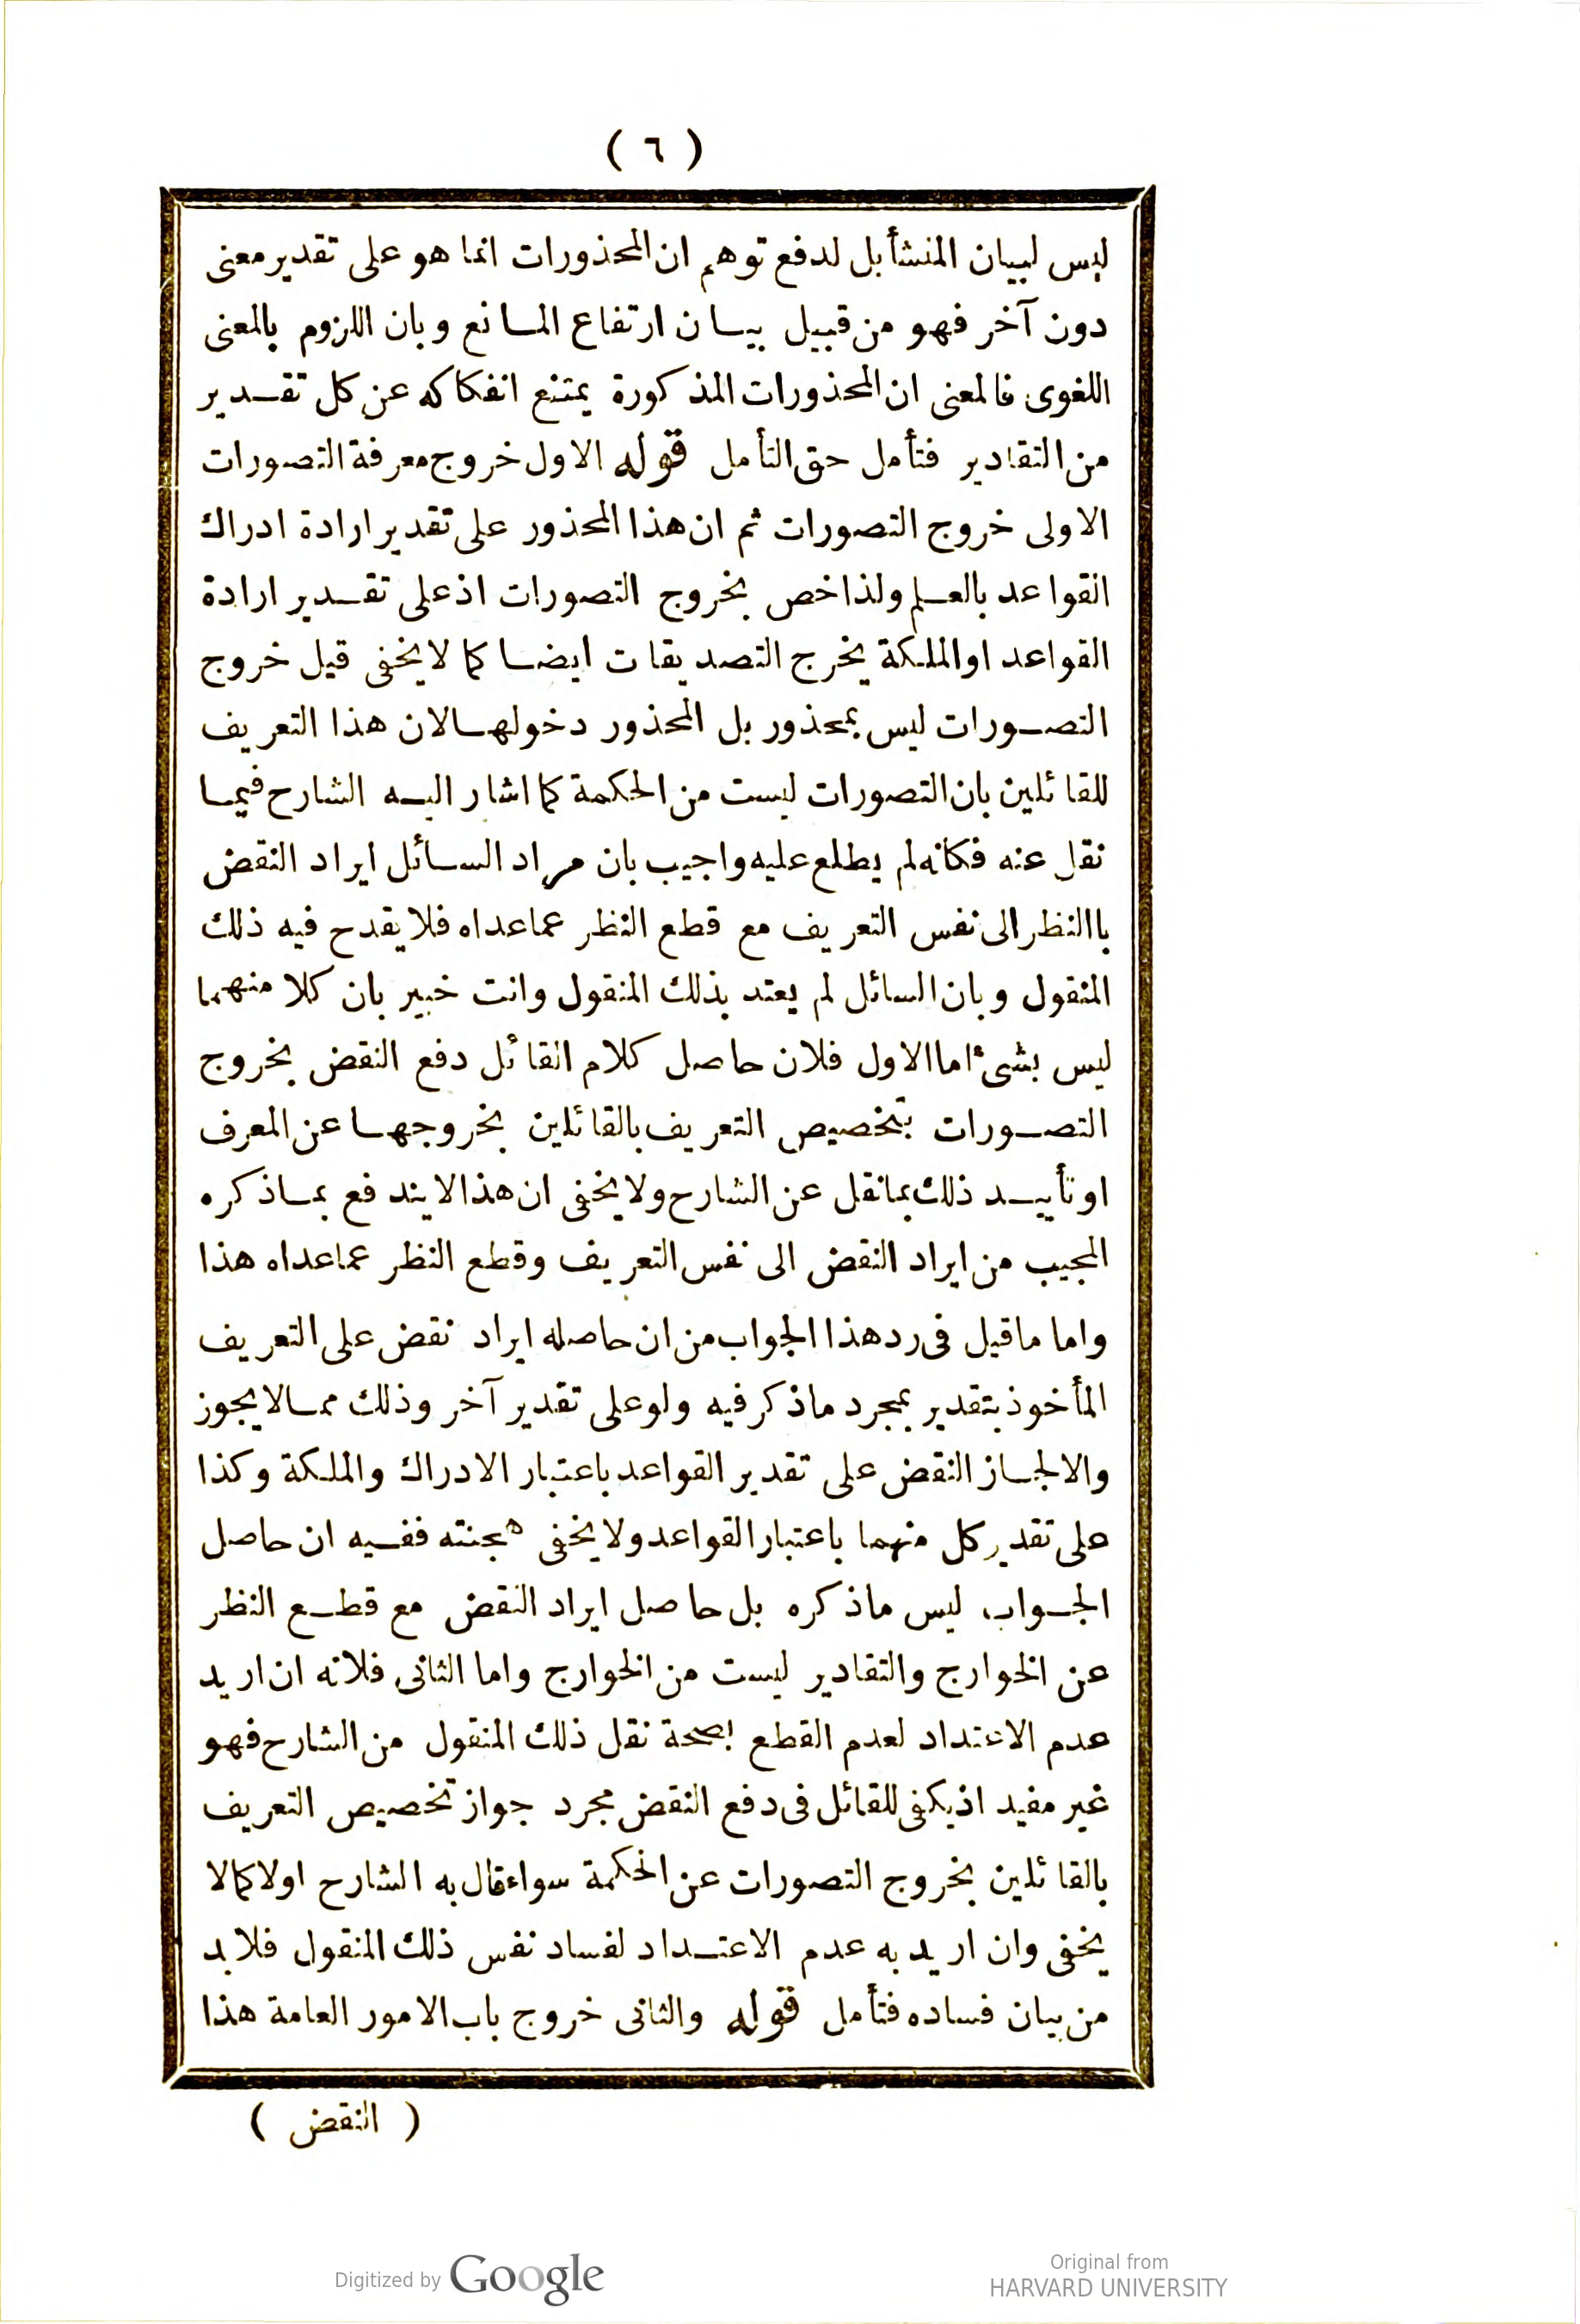 ( ٦ )
ليس لبيان المنشأ بل لدفع توهم ان المحذورات انما هو على تقدير معنى
دون آخر فهو من قبيل بيان ارتفاع المانع وبان اللزوم بالمعنى
اللغوى فالمعنى ان المحذورات المذكورة يمتنع انفكاكه عن كل تقدير
من التقادير فتأمل حق التأمل قوله الاول خروج معرفة التصورات
الاولى خروج التصورات ثم ان هذا المحذور على تقدير ارادة ادراك
القواعد بالعلم ولذا خص بخروج التصورات اذ على تقدير ارادة
القواعد او الملكة يخرج التصديقات ايضا كما لا يخفى قيل خروج
التصورات ليس بمحذور بل المحذور دخولها لان هذا التعريف
للقائلين بان التصورات ليست من الحكمة كما اشار اليه الشارح فيما
نقل عنه فكانه لم يطلع عليه واجيب بان مراد السائل ايراد النقض
باالنظر الى نفس التعريف مع قطع النظر عما عداه فلا يقدح فيه ذلك
المنقول وبان السائل لم يعتد بذلك المنقول وانت خبير بان كلا منهما
ليس بشئ اما الاول فلان حاصل كلام القائل دفع النقض بخروج
التصورات بتخصيص التعريف بالقائلين بخروجها عن المعرف
او تأييد ذلك بما نقل عن الشارح ولا يخفى ان هذا لا يندفع بماذكره
المجيب من ايراد النقض الى نفس التعريف وقطع النظر عما عداه هذا
واما ما قيل فى رد هذا الجواب من ان حاصله ايراد نقض على التعريف
المأخوذ بتقدير بمجرد ماذكر فيه ولو على تقدير آخر وذلك مما لا يجوز
والا لجاز النقض على تقدير القواعد باعتبار الادراك والملكة وكذا
على تقدير كل منهما باعتبار القواعد ولا يخفى هجنته ففيه ان حاصل
الجواب ليس ماذكره بل حاصل ايراد النقض مع قطع النظر
عن الخوارج والتقادير ليست من الخوارج واما الثانى فلانه ان اريد
عدم الاعتداد لعدم القطع بصحة نقل ذلك المنقول من الشارح فهو
غير مفيد اذ يكفى للقائل فى دفع النقض مجرد جواز تخصيص التعريف
بالقائلين بخروج التصورات عن الحكمة سواء قال به الشارح اولا كما لا
يخفى وان اريد به عدم الاعتداد لفساد نفس ذلك المنقول فلا بد
من بيان فساده فتأمل قوله والثانى خروج باب الامور العامة هذا
( النقض )
Digitized by Google
Original from
HARVARD UNIVERSITY